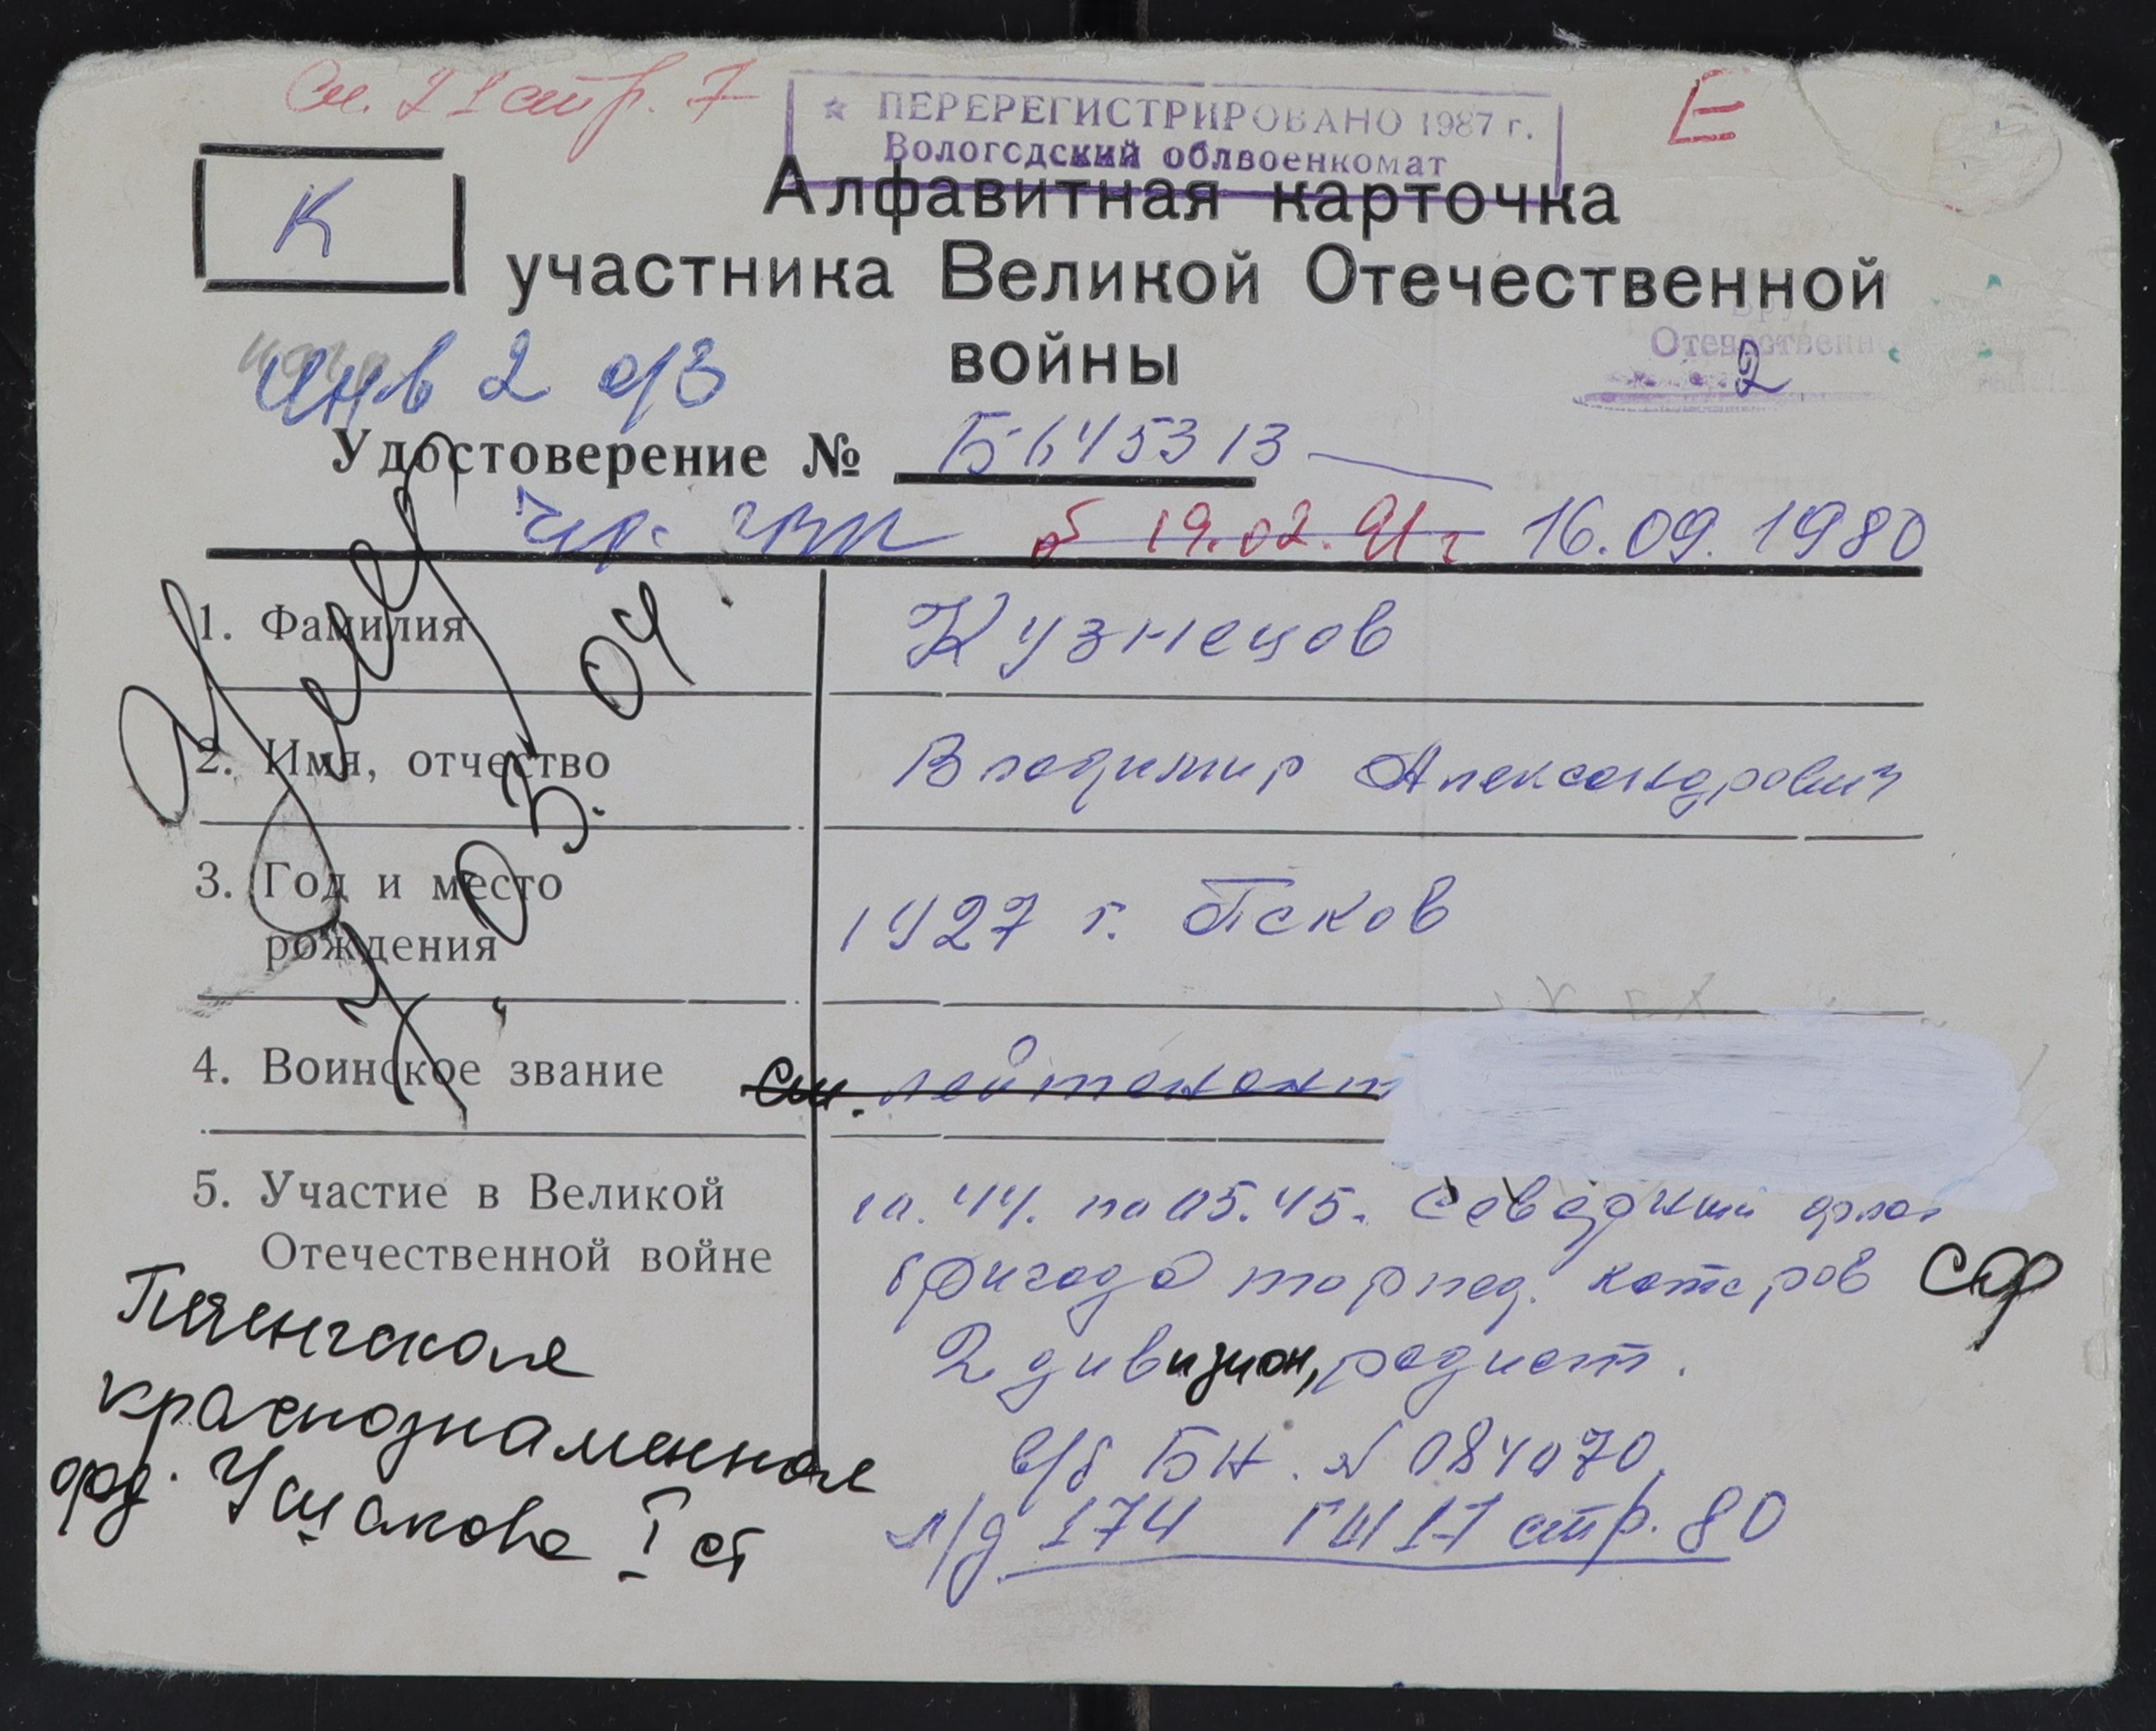 См. 21 стр. 7
★ ПЕРЕРЕГИСТРИРОВАНО 1987 г.
Вологодский облвоенкомат
Е
К
Алфавитная карточка
участника Великой Отечественной
войны
Инв 2 о/з
Отечественн
2
Удостоверение № Б-645313
19.02.91 г 16.09.1980
1. Фамилия Кузнецов
2. Имя, отчество Владимир Александрович
3. Год и место
рождения 1927 г. Псков
4. Воинское звание ст. лейтенант
5. Участие в Великой
Отечественной войне
10.44. по 05.45. Северный флот
бригада торпед. катеров СФ
2 дивизион, радист.
в/б БН. № 084070.
л/д 174 ГШ 17 стр. 80
Умер
03.04
Печенгская
краснознаменная
орд. Ушакова I ст